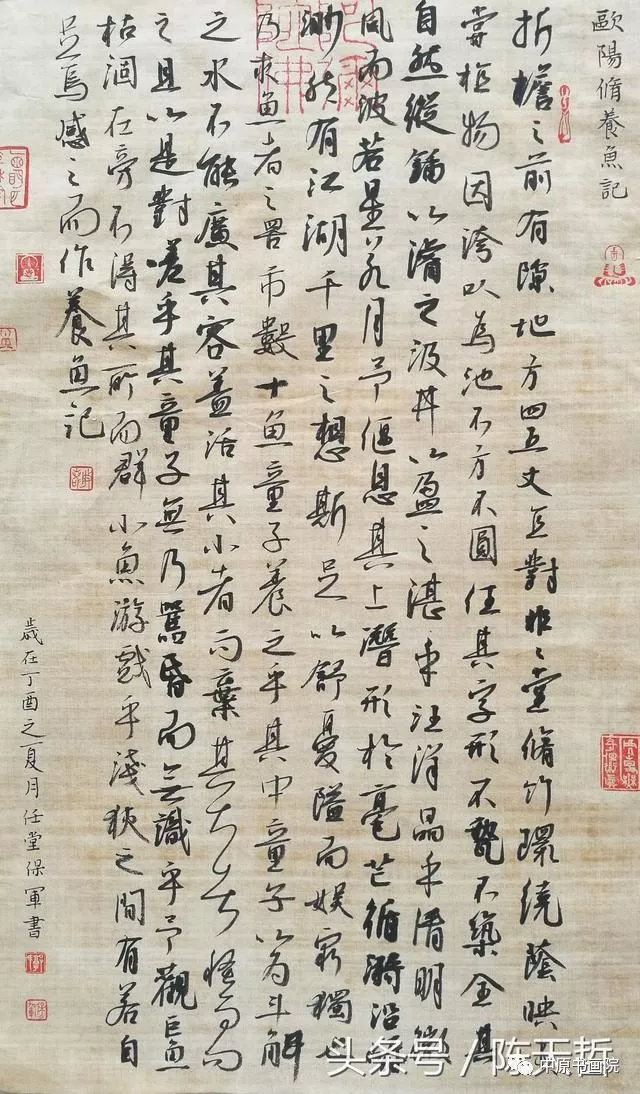 歐陽脩養魚記
折檐之前有隙地方四五丈直對非々堂脩竹環繞蔭映未
嘗植物因洿以為池不方不圓任其字形不甃不築全其
自然縱鍤以濬之汲井以盈之湛乎汪洋晶乎清明微
風而波若星若月予偃息其上潛形於毫芒循漪沿岸
渺然有江湖千里之想斯足以舒憂隘而娛窮獨也
乃求魚者之罟市數十魚童子養之乎其中童子以為斗斛
之水不能廣其容蓋活其小者而棄其大者怪而問
之且以是對嗟乎其童子無乃嚚昏而無識乎予觀巨魚
枯涸在旁不得其所而群小魚游戲乎淺狹之間有若自
足焉感之而作養魚記
歲在丁酉之夏月任堂保軍書
头条号/陈天哲
中原书画院